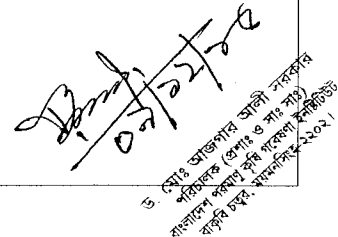 ০৮/১২/২৫
ড. মোঃ আজগার আলী সরকার
পরিচালক (প্রশাঃ ও সাঃ সাঃ)
বাংলাদেশ পরমাণু কৃষি গবেষণা ইনস্টিটিউট
বাকৃবি চত্বর, ময়মনসিংহ-২২০২।